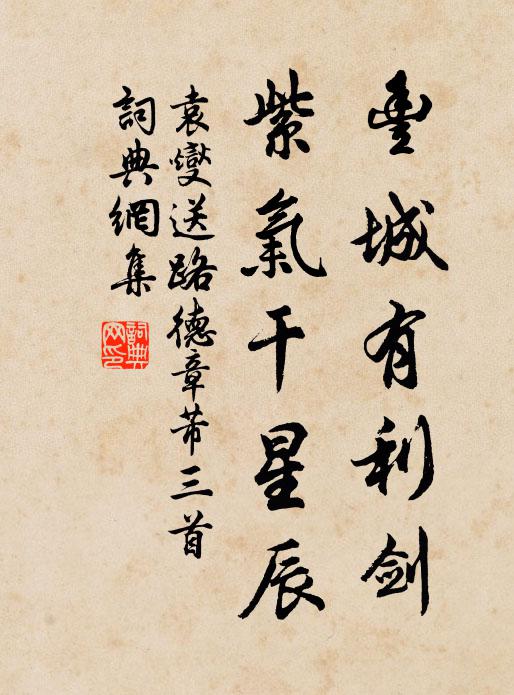 豐城有利劍
紫氣干星辰
袁燮送路德章芾三首
詞典網集
詞典網印